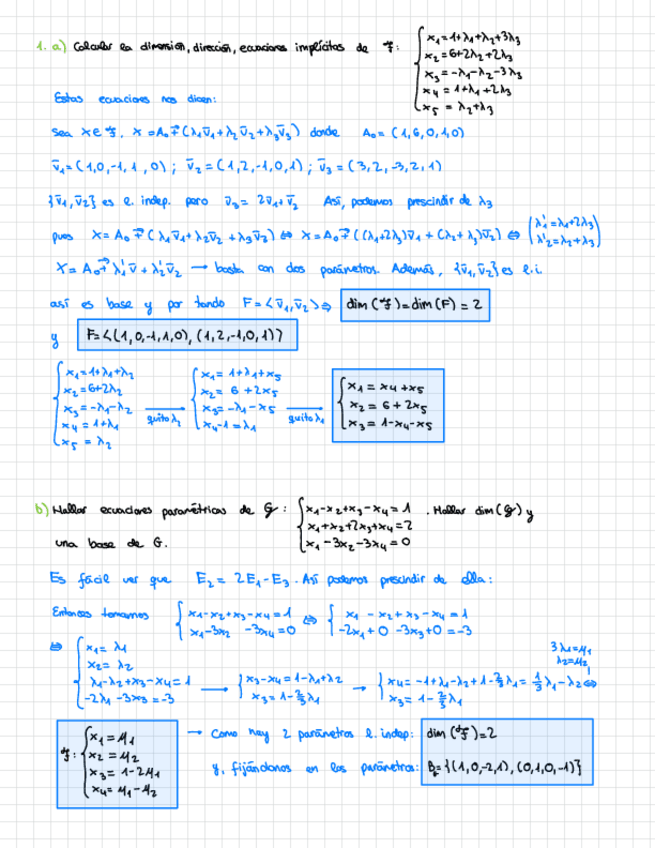 1. a) Calcular la dimensión, dirección, ecuaciones implícitas de F: { x₁=1+λ₁+λ₂+3λ₃
x₂=6+2λ₂+2λ₃
x₃=-λ₁-λ₂-3λ₃
x₄=1+λ₁+2λ₃
x₅=λ₂+λ₃
Estas ecuaciones nos dicen:
Sea X∈F, X=A₀+(λ₁v̄₁+λ₂v̄₂+λ₃v̄₃) donde A₀=(1,6,0,1,0)
v̄₁=(1,0,-1,1,0); v̄₂=(1,2,-1,0,1); v̄₃=(3,2,-3,2,1)
{v̄₁,v̄₂} es l. indep. pero v̄₃=2v̄₁+v̄₂ Así, podemos prescindir de λ₃
pues X=A₀+(λ₁v̄₁+λ₂v̄₂+λ₃v̄₃) ⇔ X=A₀+((λ₁+2λ₃)v̄₁+(λ₂+λ₃)v̄₂) ⇔ (λ₁'=λ₁+2λ₃
λ₂'=λ₂+λ₃)
X=A₀+λ₁'v̄+λ₂'v̄₂ → basta con dos parámetros. Además, {v̄₁,v̄₂} es l.i.
así es base y por tando F=<v̄₁,v̄₂> ⇒ dim(F)=dim(F)=2
y F=<(1,0,-1,1,0),(1,2,-1,0,1)>
{ x₁=1+λ₁+λ₂
x₂=6+2λ₂
x₃=-λ₁-λ₂
x₄=1+λ₁
x₅=λ₂
quito λ₂
{ x₁=1+λ₁+x₅
x₂=6+2x₅
x₃=-λ₁-x₅
x₄-1=λ₁
quito λ₁
{ x₁=x₄+x₅
x₂=6+2x₅
x₃=1-x₄-x₅
b) Hallar ecuaciones paramétricas de G: { x₁-x₂+x₃-x₄=1 . Hallar dim(G) y
x₁+x₂+2x₃+x₄=2
una base de G. x₁-3x₂-3x₄=0
Es fácil ver que E₂=2E₁-E₃. Así podemos prescindir de ella:
Entonces tomamos { x₁-x₂+x₃-x₄=1 ⇔ { x₁-x₂+x₃-x₄=1
x₁-3x₂ -3x₄=0 -2x₁+0-3x₃+0=-3
⇔ { x₁=λ₁
x₂=λ₂
λ₁-λ₂+x₃-x₄=1
-2λ₁-3x₃=-3
→ { x₃-x₄=1-λ₁+λ₂
x₃=1-2/3λ₁
→ { x₄=-1+λ₁-λ₂+1-2/3λ₁=1/3λ₁-λ₂ ⇔
x₃=1-2/3λ₁
3λ₁=μ₁
λ₂=μ₂
F: { x₁=μ₁
x₂=μ₂
x₃=1-2μ₁
x₄=μ₁-μ₂
→ Como hay 2 parámetros l. indep: dim(F)=2
y, fijándonos en los parámetros: B={(1,0,-2,1),(0,1,0,-1)}